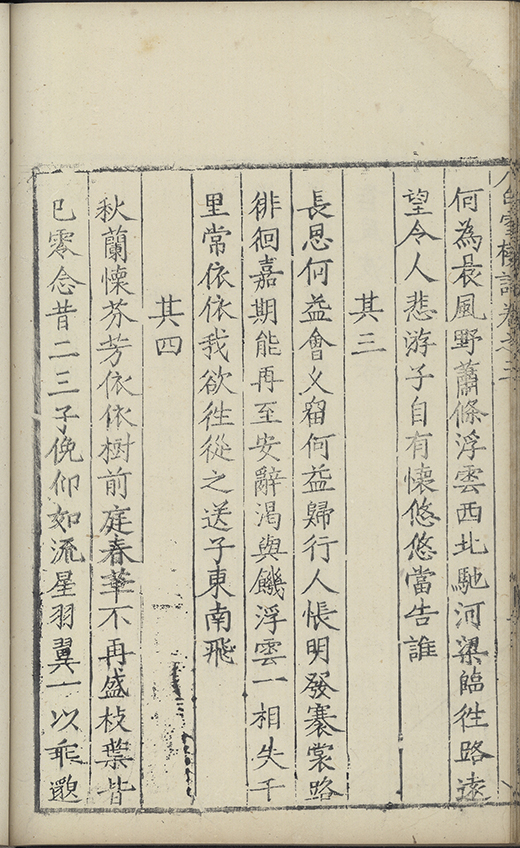 何為晨風野蕭條浮雲西北馳河梁臨往路遠
望令人悲游子自有懷悠悠當告誰
其三
長思何益會义留何益歸行人悵明發褰裳路
徘徊嘉期能再至安辭渴與饑浮雲一相失千
里常依依我欲往從之送子東南飛
其四
秋蘭懷芬芳依依樹前庭春華不再盛枝葉皆
已零念昔二三子俛仰如流星羽翼一以乖邈